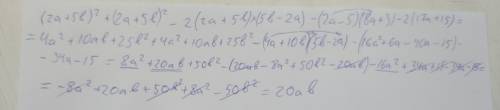 (2a+5b)² + (2a+5b)² - 2(2a+5b)×(5b-2a) - (2a-5)(8a+3)-2(17a+15)=
=4a²+10ab+25b²+4a²+10ab+25b²-(4a+10b)(5b-2a)-(16a²+6a-40a-15)-
-34a-15=8a²+20ab+50b²-(20ab-8a²+50b²-20ab)-16a²+
=-8a²+20ab+50b²+8a²-50b²=20ab